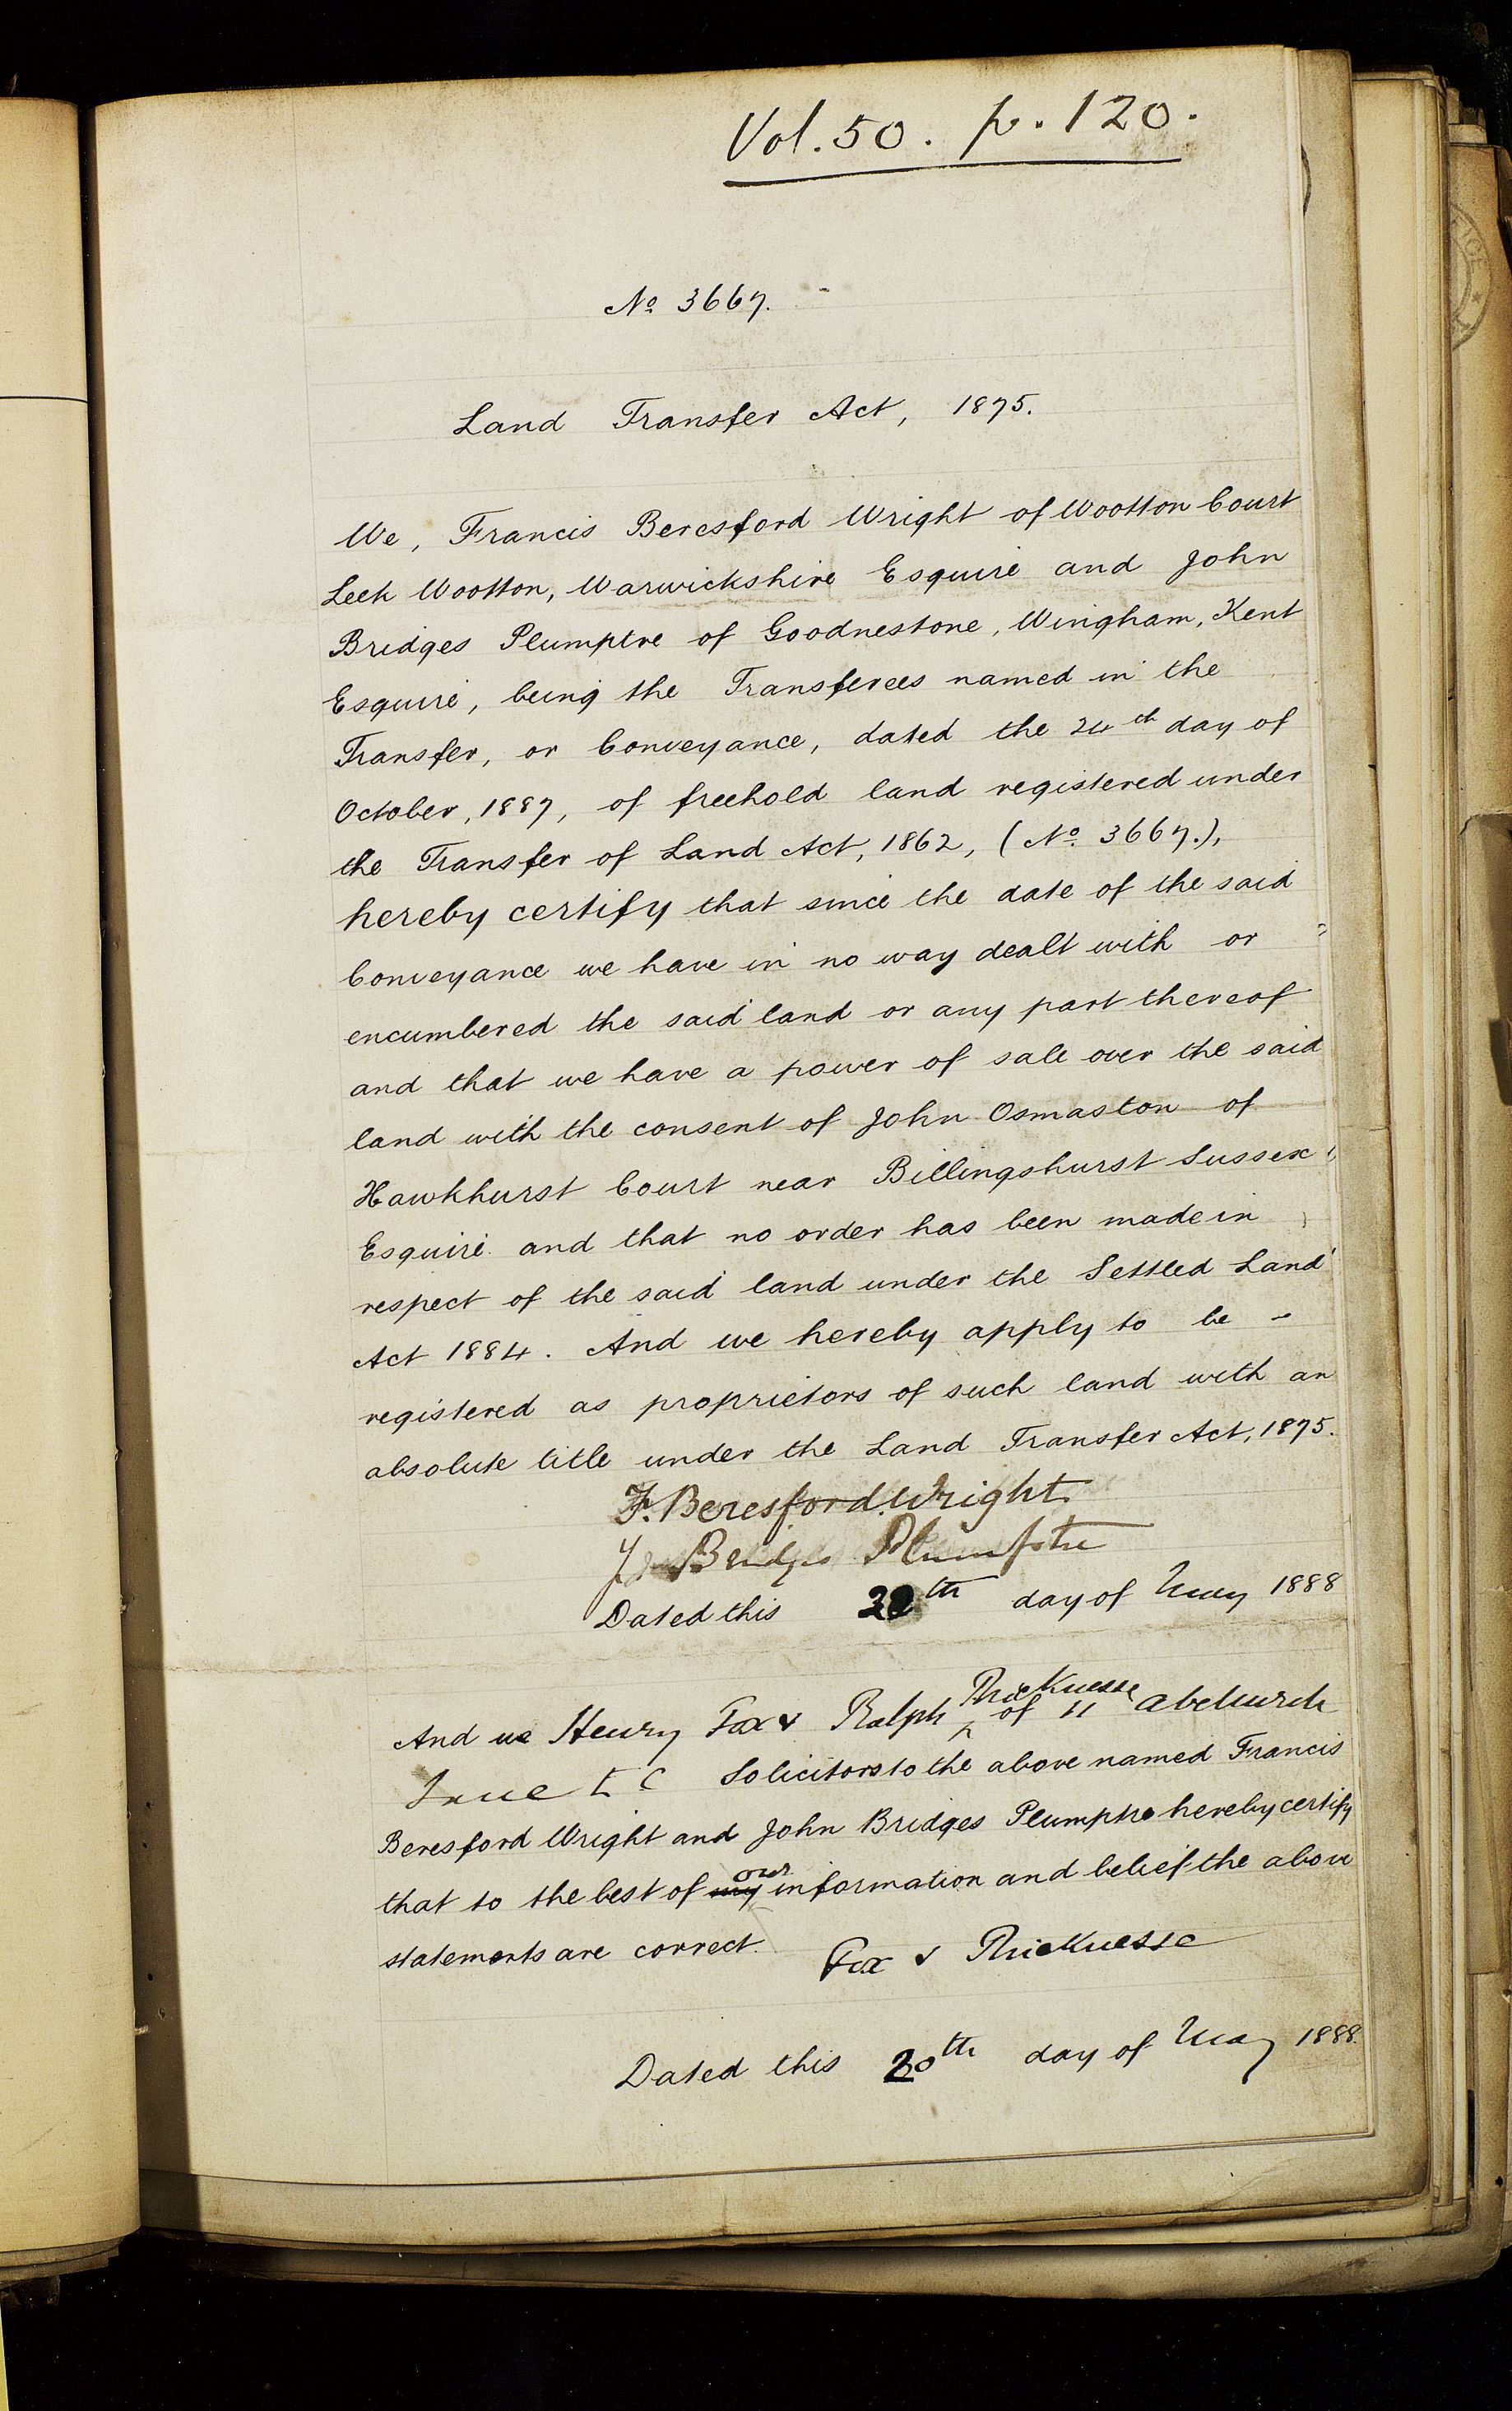 Vol. 50. p. 120.
No. 3667.
Land Transfer Act, 1875.
We, Francis Beresford Wright of Wootton Court
Leek Wootton, Warwickshire Esquire and John
Bridges Plumptre of Goodnestone, Wingham, Kent
Esquire, being the Transferees named in the
Transfer, or Conveyance, dated the 24th day of
October, 1887, of freehold land registered under
the Transfer of Land Act, 1862, (No. 3667.),
hereby certify that since the date of the said
Conveyance we have in no way dealt with or
encumbered the said land or any part thereof
and that we have a power of sale over the said
land with the consent of John Osmaston of
Hawkhurst Court near Billingshurst Sussex
Esquire and that no order has been made in
respect of the said land under the Settled Land
Act 1884. And we hereby apply to be -
registered as proprietors of such land with an
absolute title under the Land Transfer Act, 1875.
F. Beresford Wright
Jn Bridges Plumptre
Dated this th day of May 1888
Thicknesse
And we Henry Fox & Ralph ^ of 11 Abchurch
Lane E C Solicitors to the above named Francis
Beresford Wright and John Bridges Plumptre hereby certify
that to the best of my our information and belief the above
statements are correct.
Fox & Thicknesse
Dated this 20th day of May 1888.